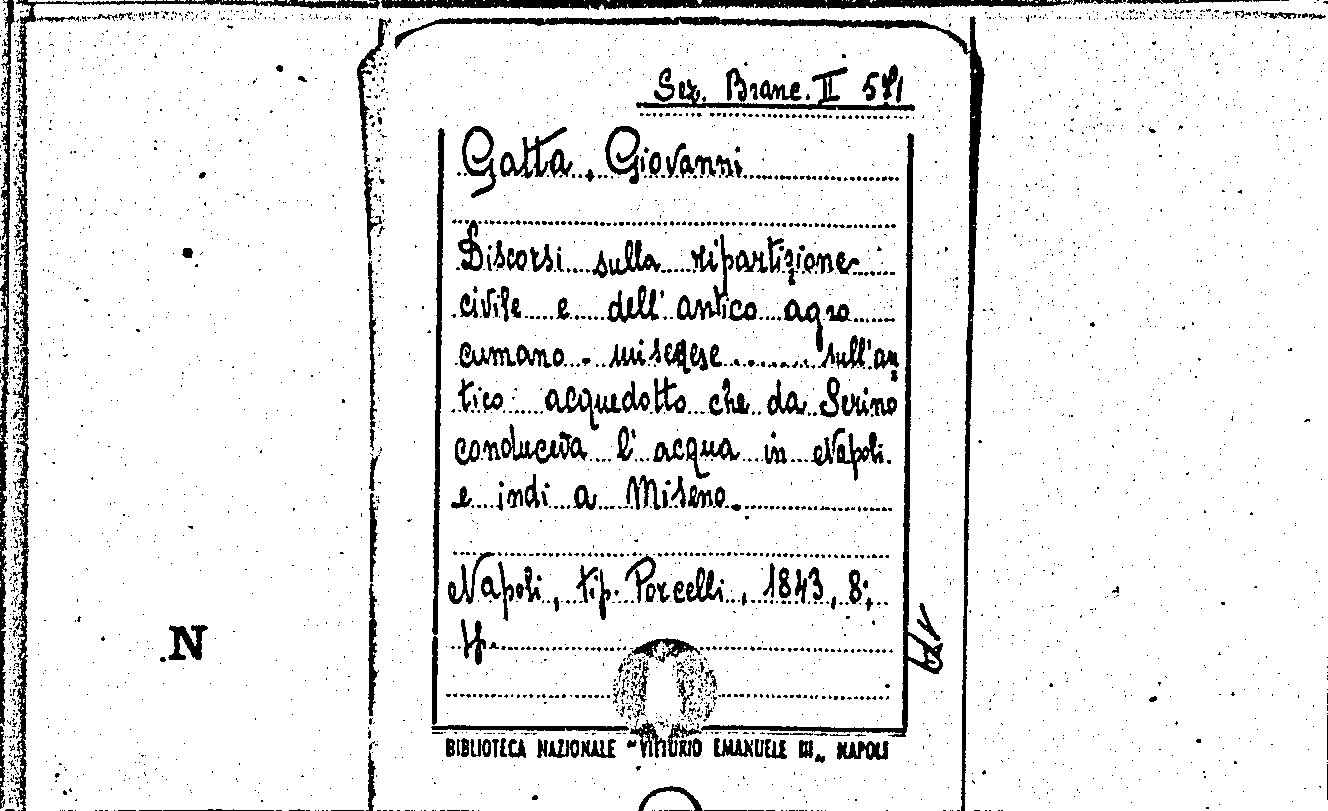 Sez. Branc. II 571
Gatta, Giovanni
Discorsi sulla ripartizione
civile e dell'antico agro
cumano - misenese ........ sull'an
tico acquedotto che da Serino
conduceva l'acqua in Napoli.
e indi a Miseno.
Napoli, tip. Porcelli, 1843, 8;
.N
BIBLIOTECA NAZIONALE "VITTORIO EMANUELE III„ NAPOLI